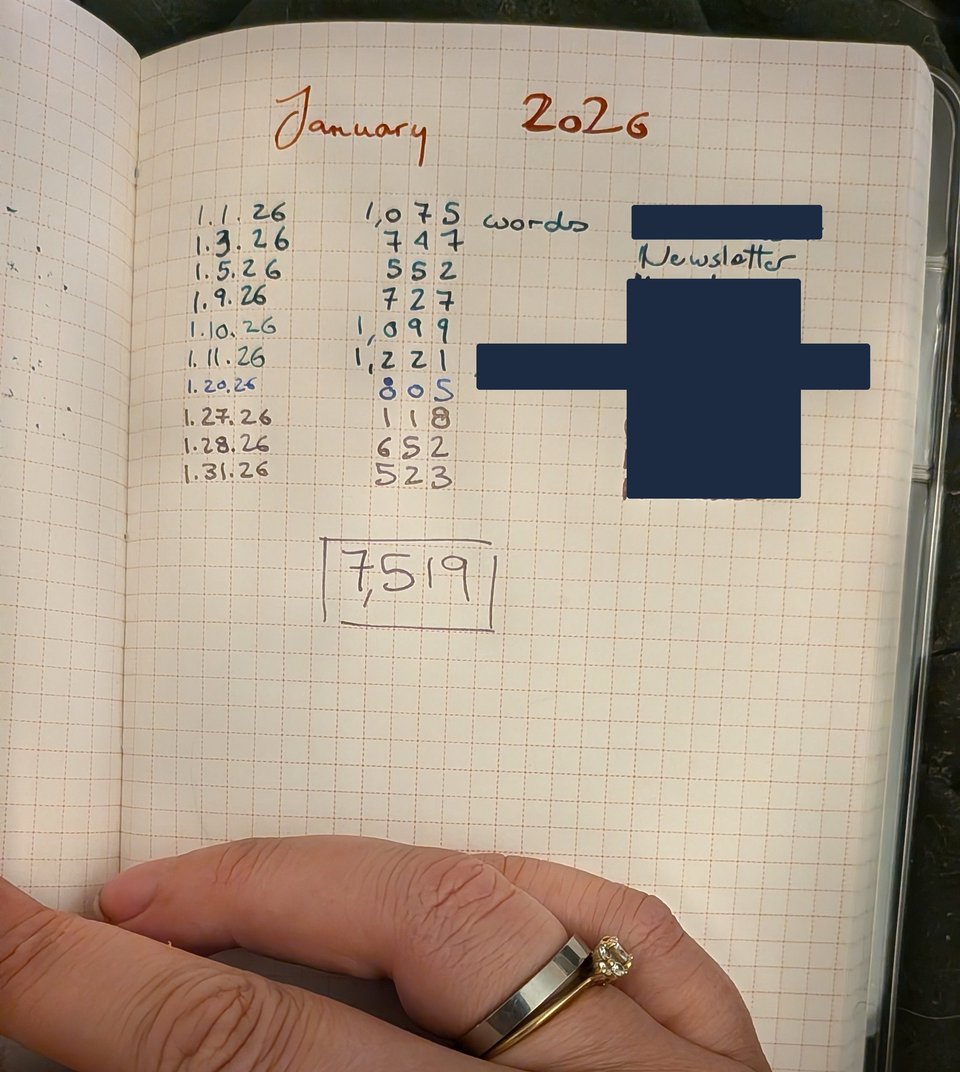 January 2026
1.1.26 1,075 words
1.3.26 747 Newsletter
1.5.26 552
1.9.26 727
1.10.26 1,099
1.11.26 1,221
1.20.26 805
1.27.26 118
1.28.26 652
1.31.26 523
7,519